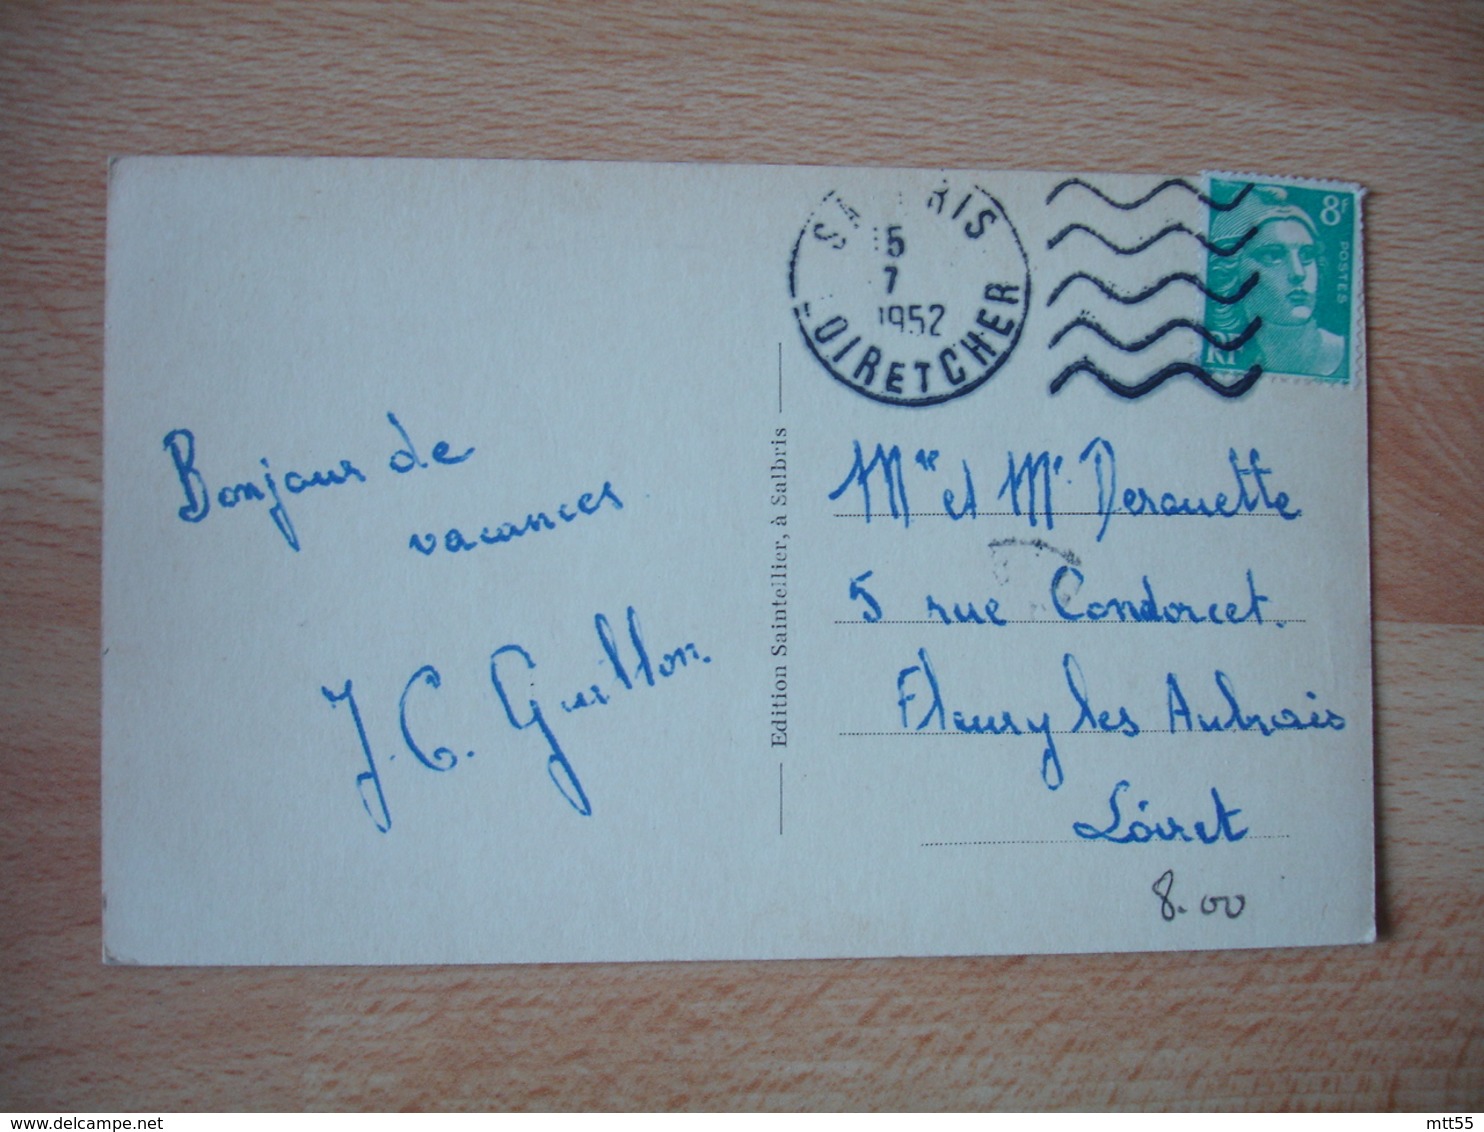 Bonjour de
vacances
J. C. Guillon
Edition Saintellier, à Salbris
SA RIS
15
7
1952
OIR ET CHER
8F
POSTES
RF
Mme et Mr Derouette
5 rue Condorcet.
Fleury les Aubrais
Loiret
8.00
delcampe.net
mtt55